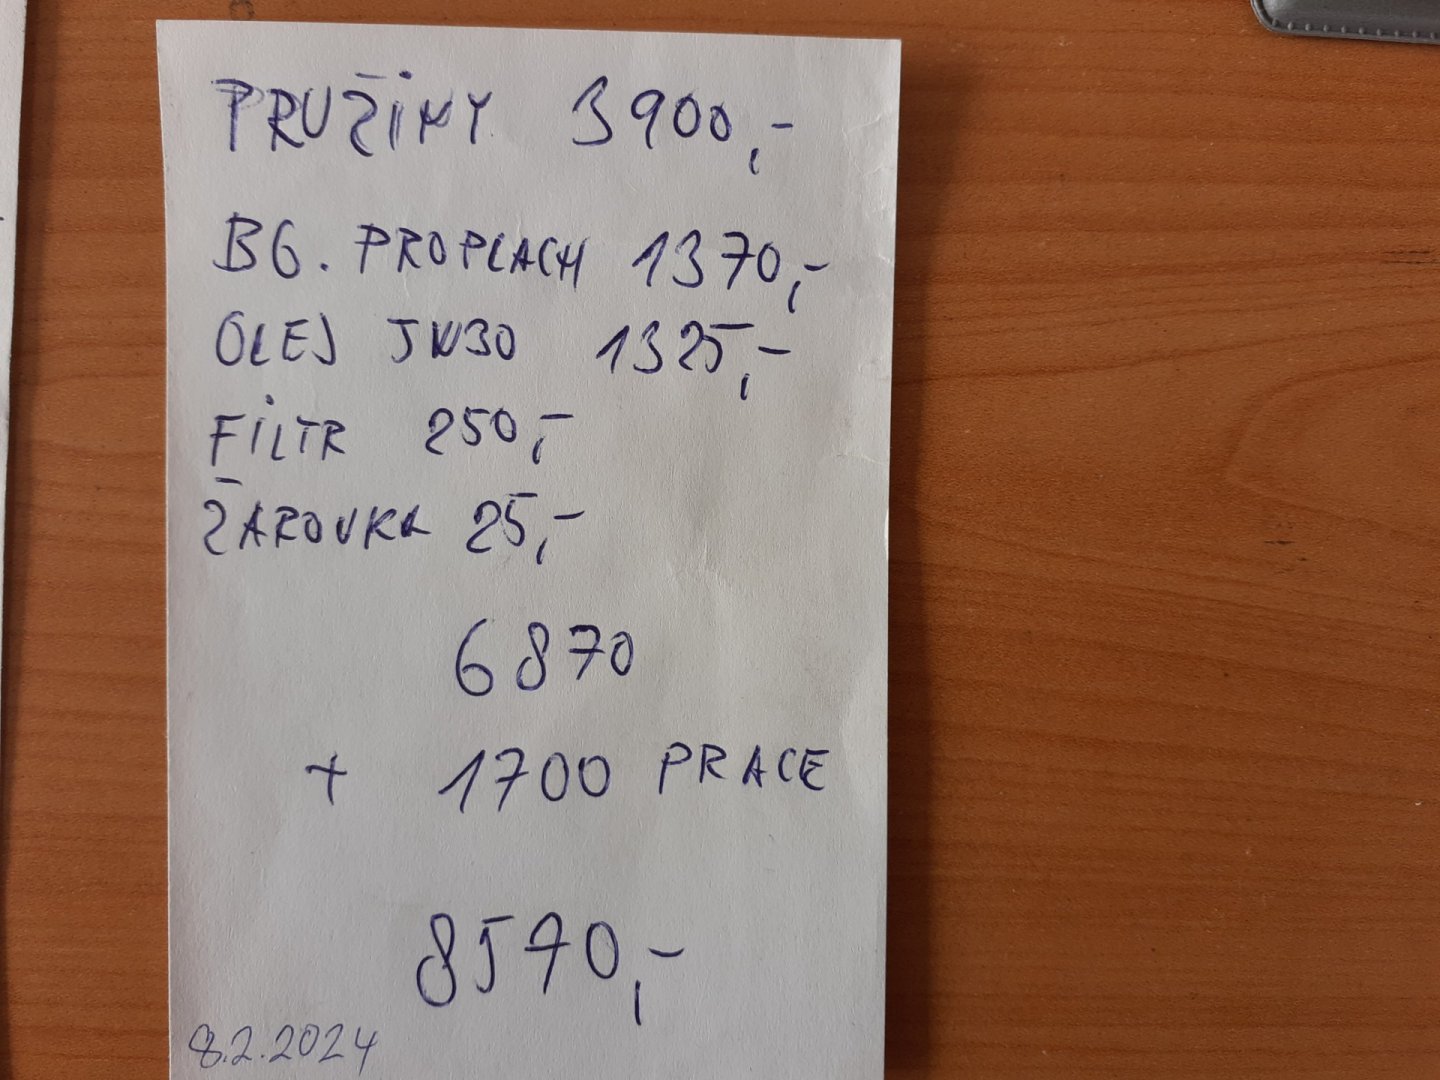 PRUŽINY 3900,-
BG. PROPLACH 1370,-
OLEJ 5W30 1325,-
FILTR 250,-
ŽAROVKA 25,-
6870
+ 1700 PRACE
8570,-
8.2.2024